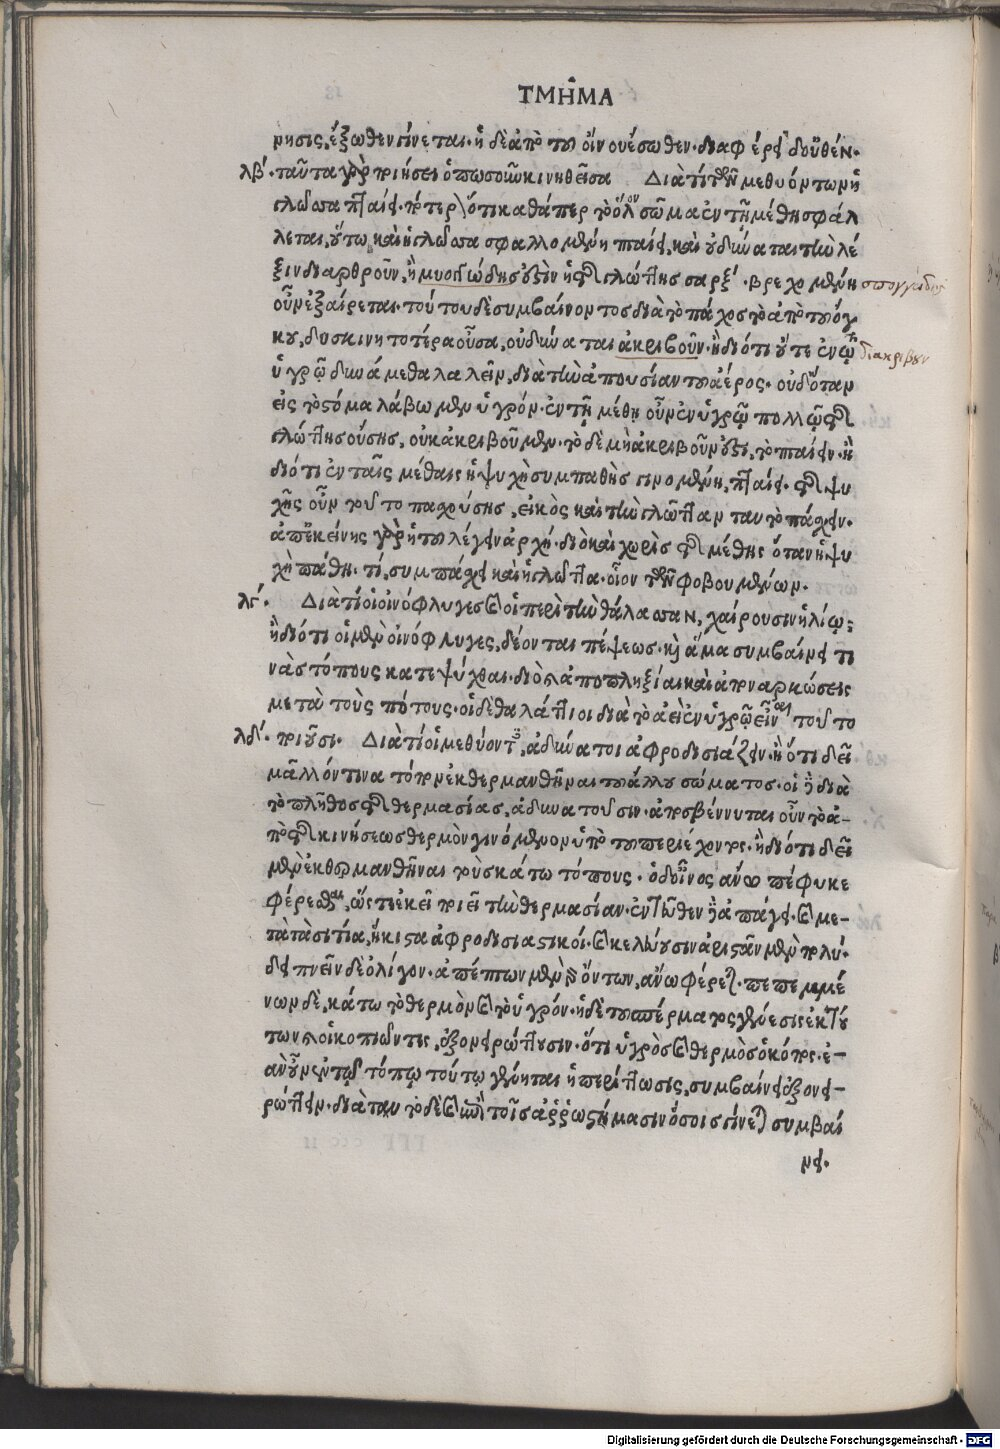 ΤΜΗ͂ΜΑ
νησις, ἔξωθεν γίνεται· ἡ δὲ ἀπὸ τοῦ οἴνου ἔσωθεν· διαφέρει δ' οὐθέν·
λβ´· ταῦτα γὰρ ποιήσει ὁπωσοῦν κινηθεῖσα Διὰ τί τῶν μεθυόντων ἡ
γλῶσσα πταίει· πότερον ὅτι καθάπερ τὸ ὅλον σῶμα ἐν τῇ μέθῃ σφάλ
λεται, οὕτω καὶ ἡ γλῶσσα σφαλλομένη πταίει, καὶ οὐ δύναται τὴν λέ
ξιν διαρθροῦν, ἢ μυοειδώδης ἐστὶν ἡ τῆς γλώττης σαρξ´· βρεχομένη σπογγώδης
οὖν ἐξαίρεται· τούτου δὲ συμβαίνοντος διὰ τὸ πάχος τὸ ἀπὸ τοῦ ὄγ
κου, δυσκινητοτέρα οὖσα, οὐ δύναται ἀκριβοῦν· ἢ διότι οὔτε ἐν τῷ διακριβοῦν
ὑγρῷ δυνάμεθα λαλεῖν, διὰ τὴν ἀπουσίαν τοῦ ἀέρος· οὐδ' ὅταν
εἰς τὸ στόμα λάβωμεν ὑγρόν· ἐν τῇ μέθῃ οὖν ἐν ὑγρῷ πολλῷ τῆς
γλώττης οὔσης, οὐκ ἀκριβοῦμεν· τὸ δὲ μὴ ἀκριβοῦν ἐστι, τὸ πταίειν· ἢ
διότι ἐν ταῖς μέθαις ἡ ψυχὴ συμπαθὴς γινομένη, πταίει· τῆς ψυ
χῆς οὖν τοῦτο πασχούσης, εἰκὸς καὶ τὴν γλῶτταν ταυτὸ πάσχειν·
ἀπ' ἐκείνης γὰρ ἡ τοῦ λέγειν ἀρχή· διὸ καὶ χωρὶς τῆς μέθης ὅταν ἡ ψυ
χὴ πάθῃ· τί, συμπάσχει καὶ ἡ γλῶττα· οἷον τῶν φοβουμένων·
λγ´· Διὰ τί οἱ οἰνόφλυγες καὶ οἱ περὶ τὴν θάλασσαν, χαίρουσιν ἡλίῳ;
ἢ διότι οἱ μὲν οἰνόφλυγες, δέονται πέψεως· καὶ ἅμα συμβαίνει τι
νὰς τόπους κατεψύχθαι· διὸ καὶ ἀποπληξίαι καὶ ἀποναρκώσεις
μετὰ τοὺς πότους· οἱ δὲ θαλάττιοι διὰ τὸ ἀεὶ ἐν ὑγρῷ εἶναι τοῦτο
λδ´· ποιοῦσι· Διὰ τί οἱ μεθύοντες, ἀδύνατοι ἀφροδισιάζειν· ἢ ὅτι δεῖ
μᾶλλόν τινα τόπον ἐκθερμανθῆναι τοῦ ἄλλου σώματος· οἱ δὲ διὰ
τὸ πλῆθος τῆς θερμασίας, ἀδυνατοῦσιν· ἀποσβέννυται οὖν τὸ ἀ-
πὸ τῆς κινήσεως θερμὸν γινόμενον ὑπὸ τοῦ περιέχοντος· ἢ διότι δεῖ
μὲν ἐκθερμανθῆναι τοὺς κάτω τόπους· ὁ δ' οἶνος ἄνω πέφυκε
φέρεσθαι, ὥστε ἐκεῖ ποιεῖ τὴν θερμασίαν· ἐντεῦθεν δὲ ἀπάγει· καὶ με-
τὰ τὰ σιτία, ἥκιστα ἀφροδισιαστικοί· καὶ κελεύουσιν ἀριστᾶν μὲν πολύ·
δειπνεῖν δὲ ὀλίγον· ἀπέπτων μὲν γὰρ ὄντων, ἄνω φέρεται· πεπεμμέ
νων δὲ, κάτω τὸ θερμὸν καὶ τὸ ὑγρόν· ἡ δὲ τοῦ σπέρματος γένεσις ἐκ τού
των καὶ οἱ κοπιῶντες, ἐξονειρώττουσιν· ὅτι ὑγρὸς καὶ θερμὸς ὁ κόπος· ἐ-
ὰν οὖν ἐν τῷ τόπῳ τούτῳ γένηται ἡ περίττωσις, συμβαίνει ἐξονει-
ρώττειν· διὰ ταυτὸ δὲ καὶ ἐπὶ τοῖς ἀῤῥωστήμασιν ὅσοις γίνεται συμβαί
νει·
Digitalisierung gefördert durch die Deutsche Forschungsgemeinschaft - DFG